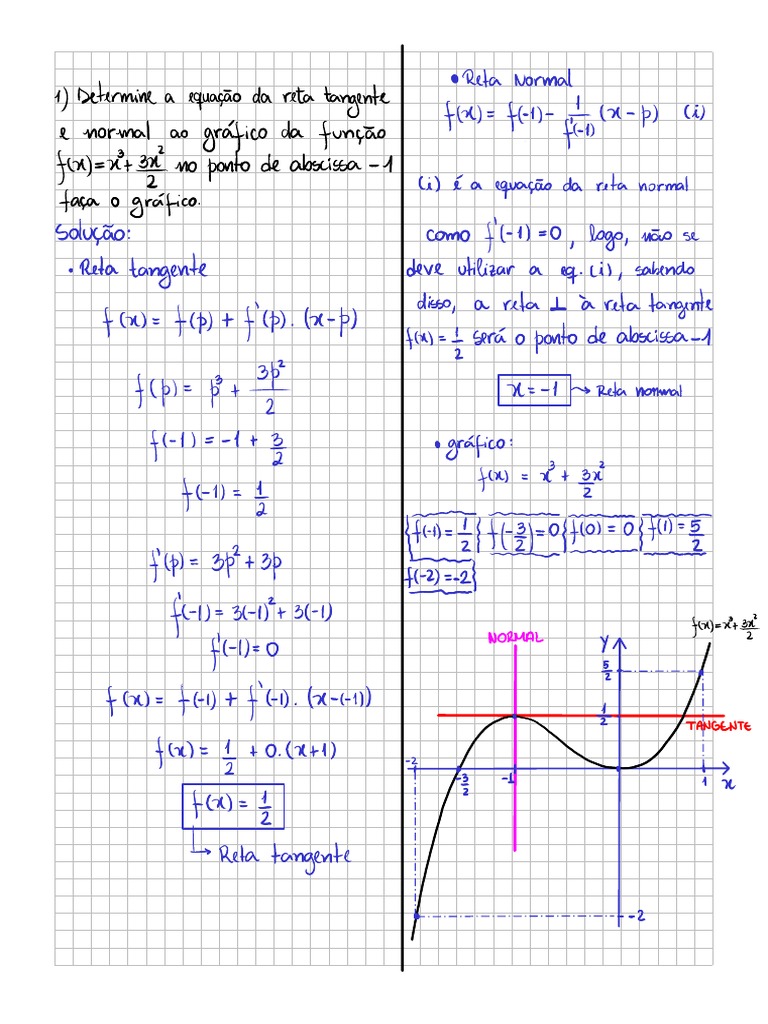 1) Determine a equação da reta tangente
e normal ao gráfico da função
f(x)=x³+3x²/2 no ponto de abscissa -1
faça o gráfico.
Solução:
• Reta tangente
f(x) = f(p) + f'(p). (x-p)
f(p) = p³ + 3p²/2
f(-1) = -1 + 3/2
f(-1) = 1/2
f'(p) = 3p² + 3p
f'(-1) = 3(-1)² + 3(-1)
f'(-1) = 0
f(x) = f(-1) + f'(-1). (x-(-1))
f(x) = 1/2 + 0.(x+1)
f(x) = 1/2
↳ Reta tangente
• Reta Normal
f(x) = f(-1) - 1/f'(-1) (x-p) (i)
(i) é a equação da reta normal
como f'(-1) = 0, logo, não se
deve utilizar a eq.(i), sabendo
disso, a reta ⊥ à reta tangente
f(x) = 1/2 será o ponto de abscissa -1
x = -1 → Reta normal
• gráfico:
f(x) = x³ + 3x²/2
{f(-1) = 1/2} f(-3/2) = 0 {f(0) = 0} f(1) = 5/2
f(-2) = -2}
f(x)=x³+3x²/2
NORMAL
Y
5/2
1/2
TANGENTE
-2
-3/2
-1
1
x
-2